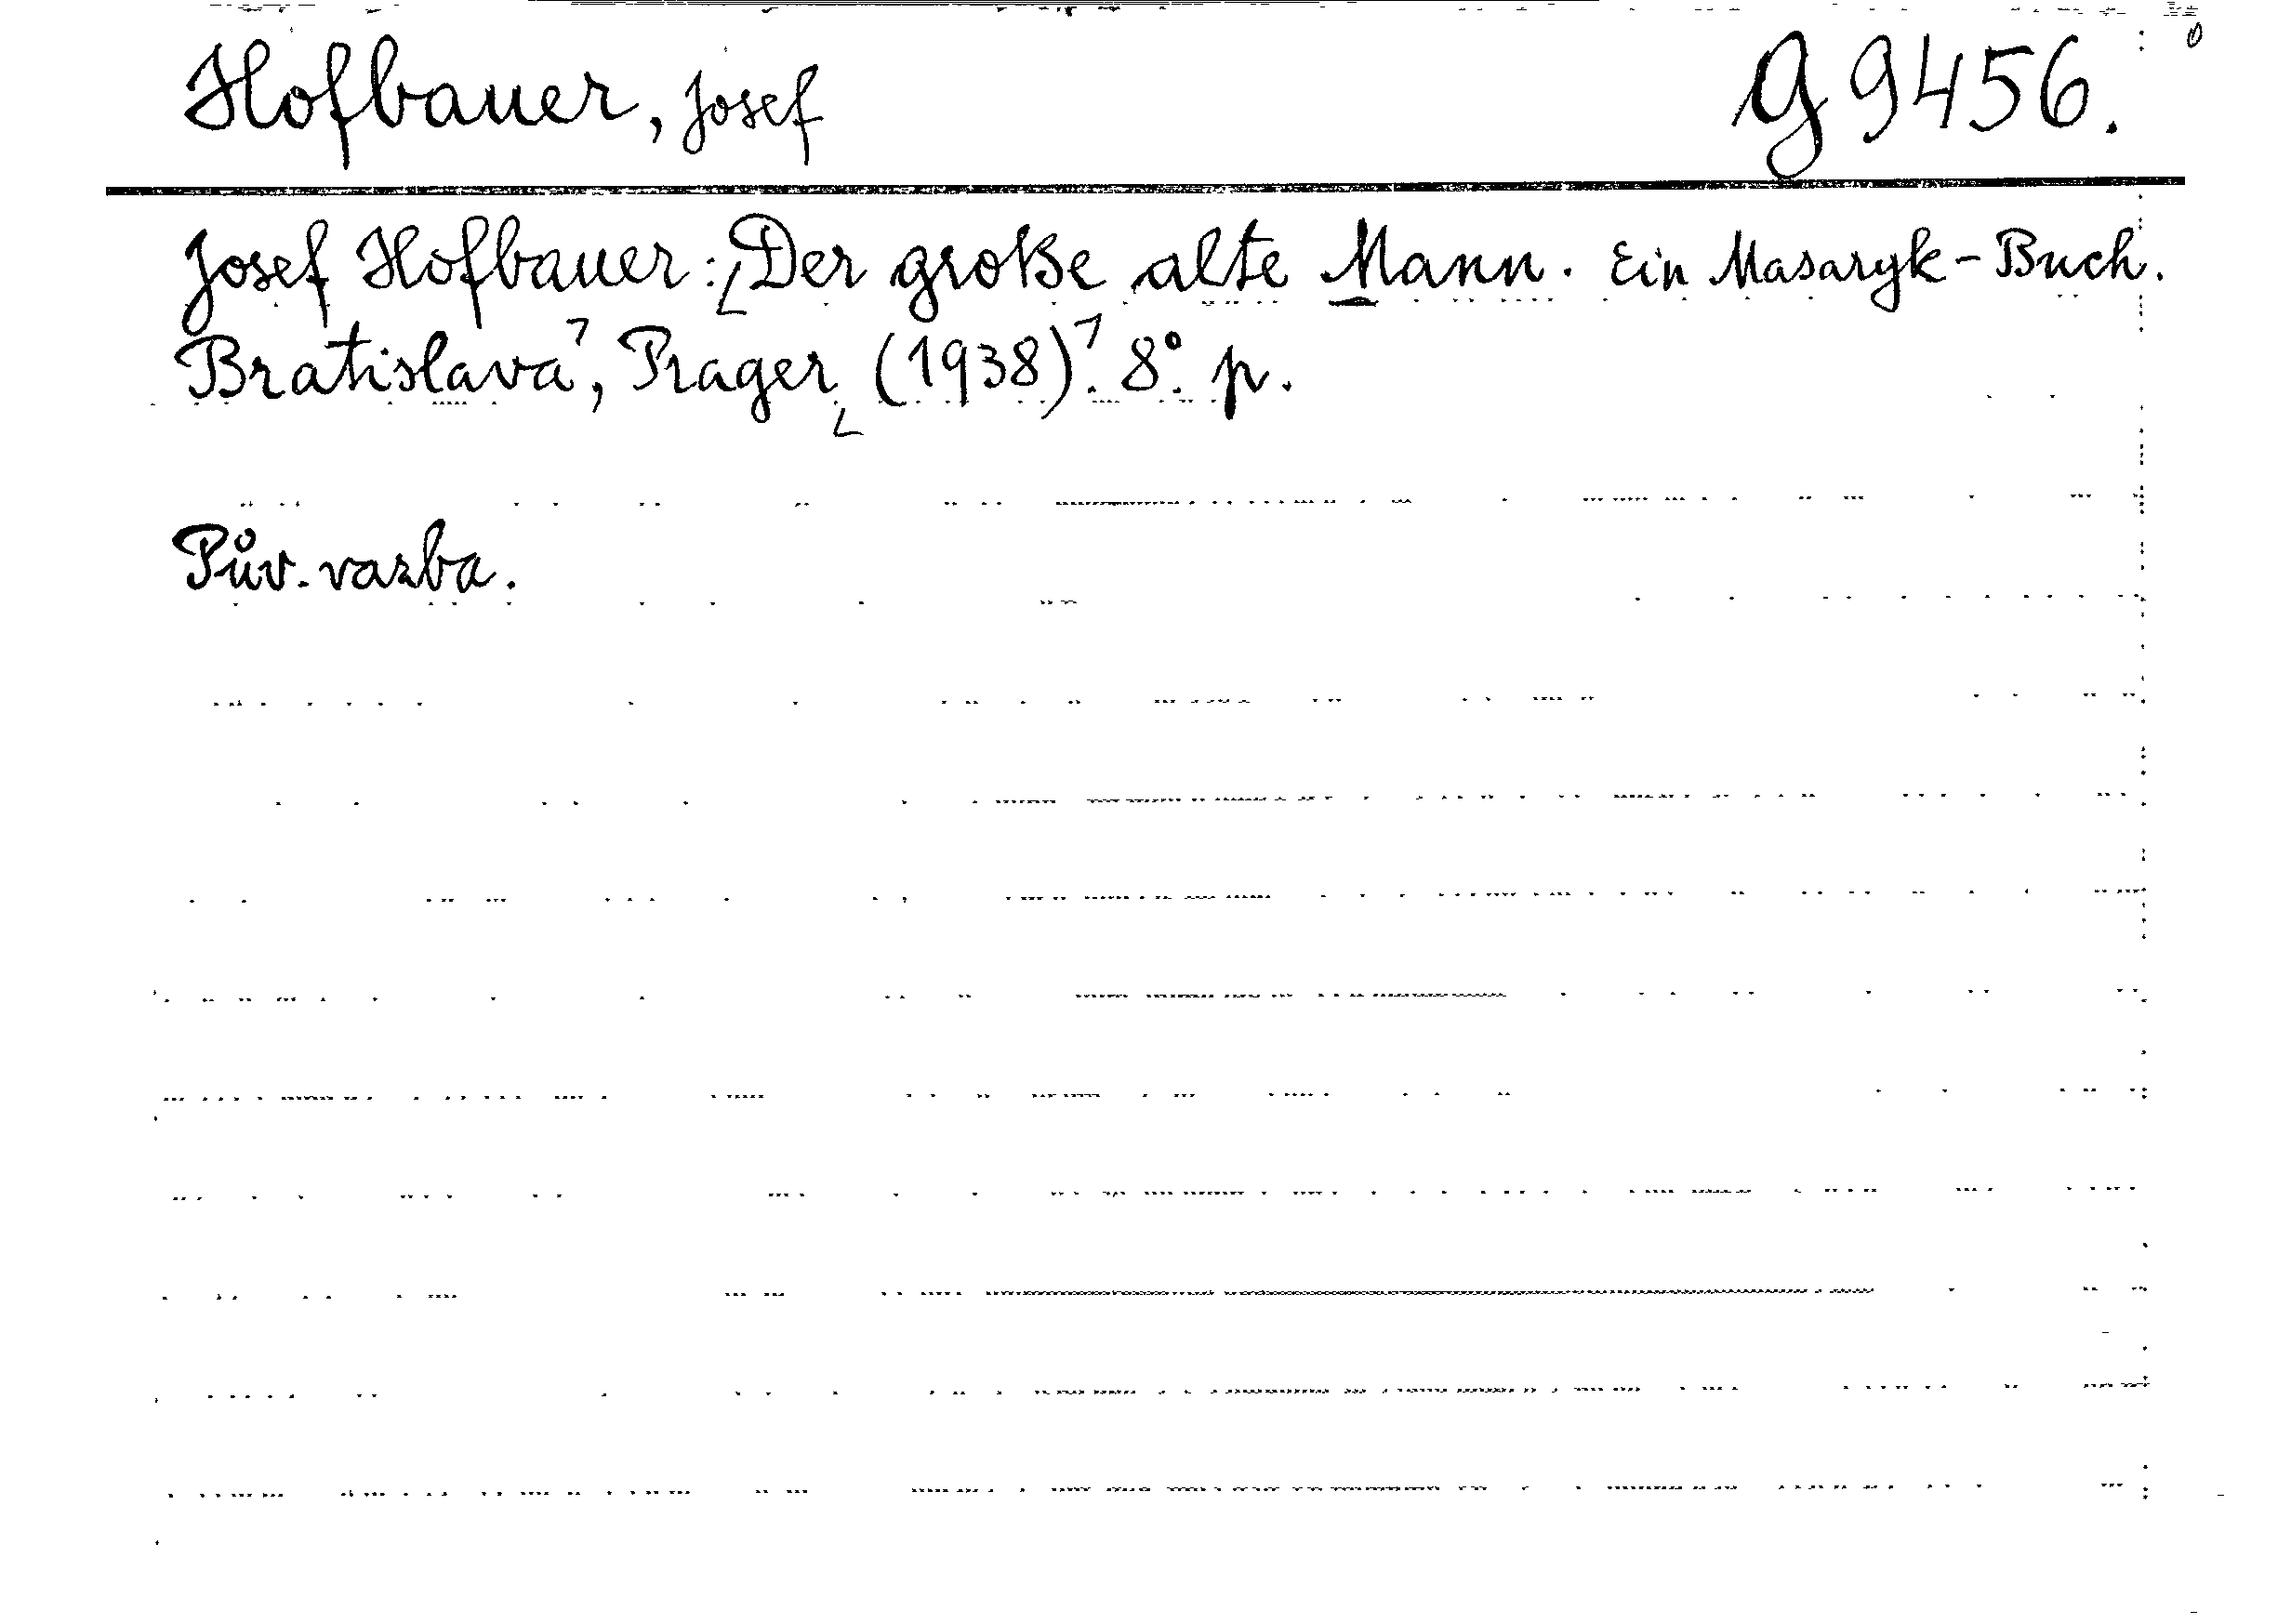 Hofbauer, Josef G 9456.
Josef Hofbauer: Der große alte Mann. Ein Masaryk-Buch.
Bratislava, Prager (1938). 8°. p.
Pův. vazba.